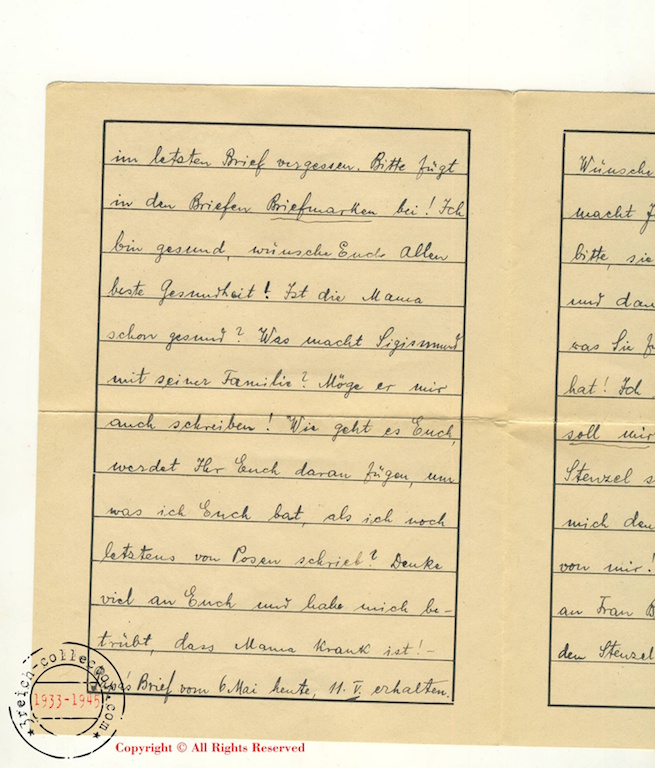 im letzten Brief vergessen. Bitte fügt
in den Briefen Briefmarken bei! Ich
bin gesund, wünsche Euch Allen
beste Gesundheit! Ist die Mama
schon gesund? Was macht Sigismund
mit seiner Familie? Möge er mir
auch schreiben! Wie geht es Euch,
werdet Ihr Euch daran fügen, um
was ich Euch bat, als ich noch
letztens von Posen schrieb? Denke
viel an Euch und habe mich be-
trübt, dass Mama krank ist! -
Brief vom 6. Mai heute, 11. V. erhalten.
Wünsche
macht
bitte, sie
und
was Sie
hat! Ich
soll mir
Stenzel
mich den
von mir!
an Frau B
den Stenzel
3reich-collection.com
1933-1945
Copyright © All Rights Reserved